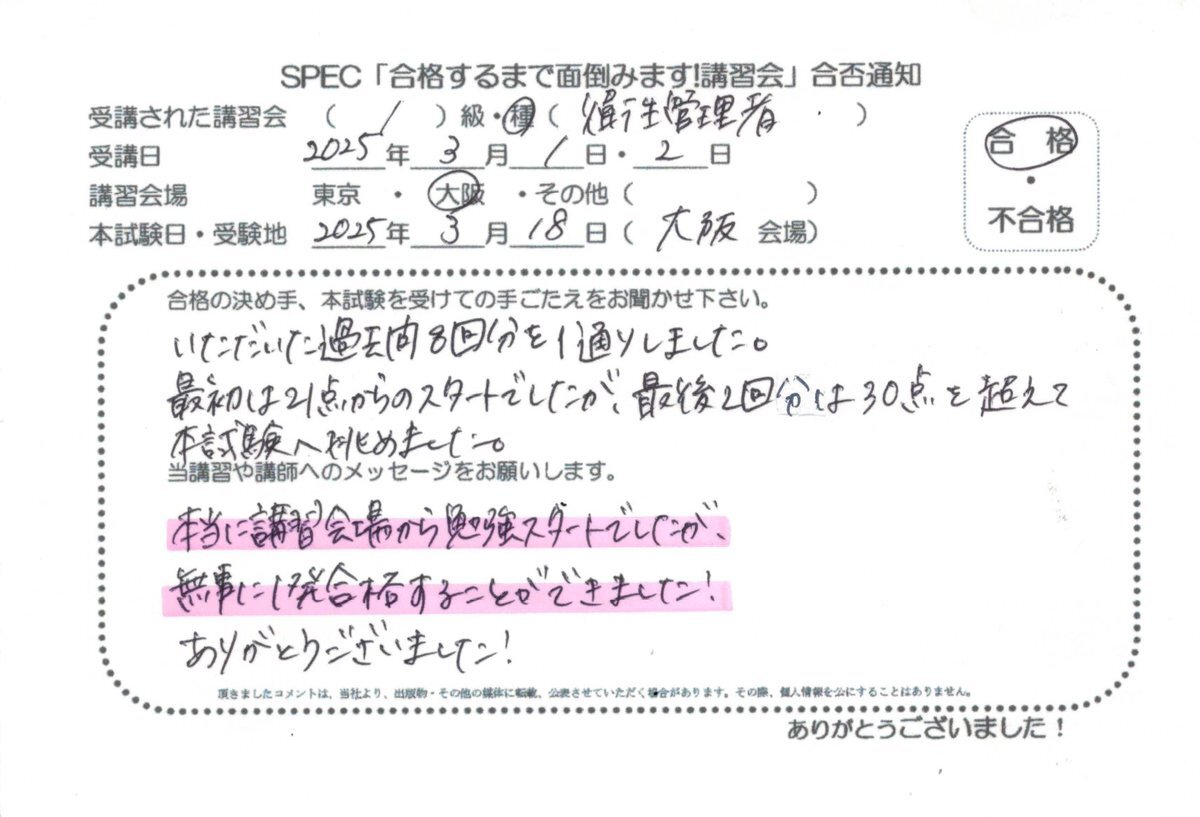 SPEC「合格するまで面倒みます!講習会」合否通知
受講された講習会 ( 1 ) 級・種 ( 衛生管理者 )
受講日 2025年 3月 1日・2日
講習会場 東京 ・ 大阪 ・その他 ( )
本試験日・受験地 2025年 3月 18日 ( 大阪 会場)
合 格
・
不合格
合格の決め手、本試験を受けての手ごたえをお聞かせ下さい。
いただいた過去問8回分を1通りしました。
最初は21点からのスタートでしたが、最後2回分は30点を超えて
本試験へ挑めました。
当講習や講師へのメッセージをお願いします。
本当に講習会場から勉強スタートでしたが、
無事に1発合格することができました!
ありがとうございました!
頂きましたコメントは、当社より、出版物・その他の媒体に転載、公表させていただく場合があります。その際、個人情報を公にすることはありません。
ありがとうございました!